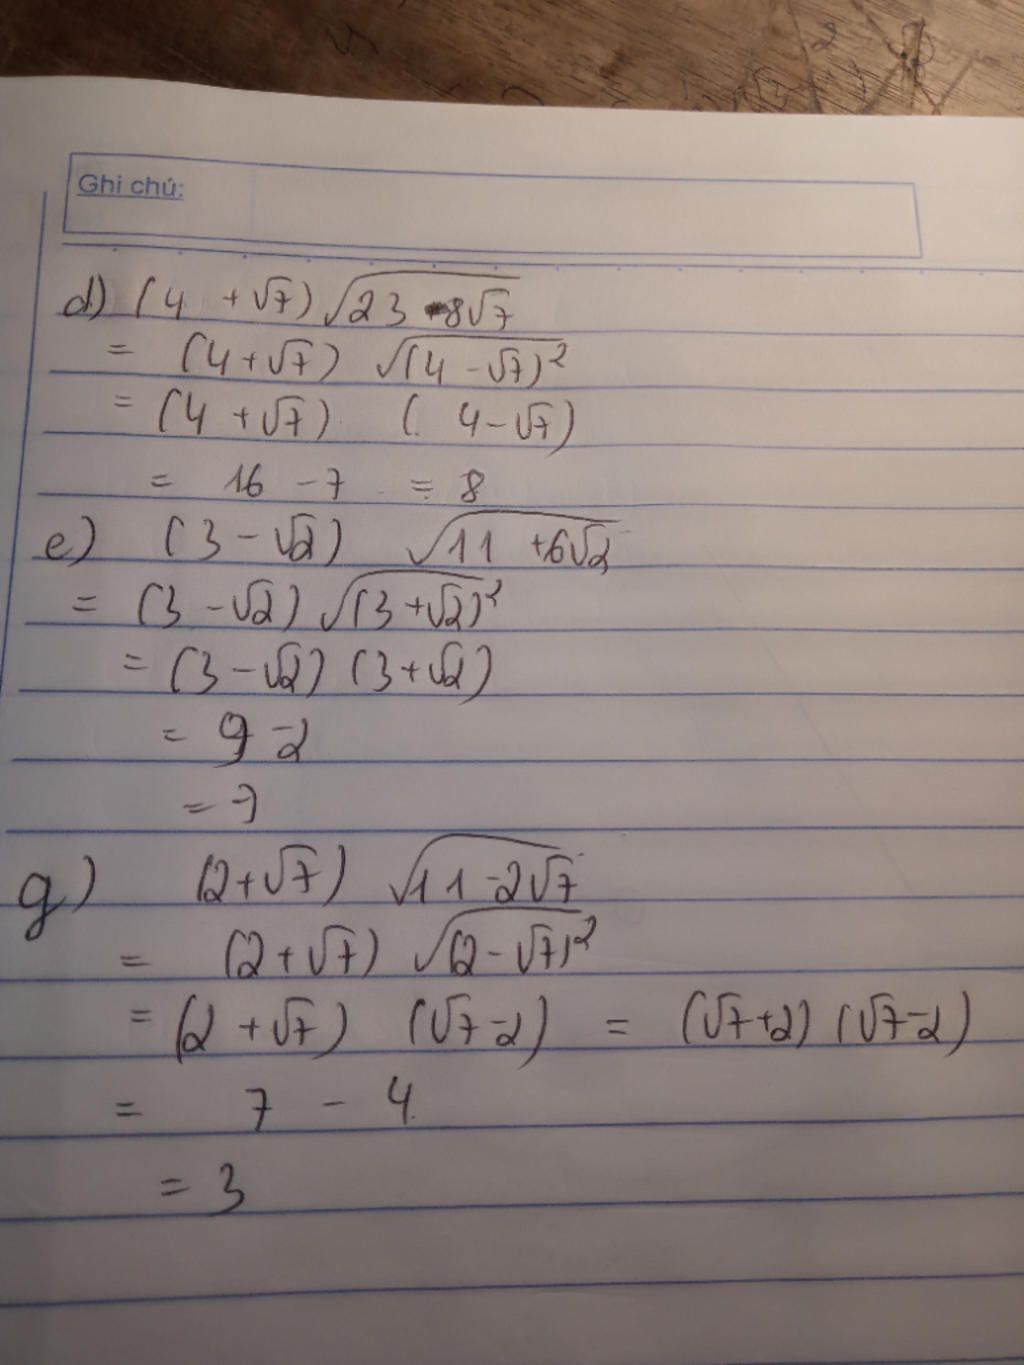 Ghi chú:
d) (4 + √7) √(23 - 8√7)
= (4 + √7) √((4 - √7)²)
= (4 + √7) (4 - √7)
= 16 - 7 = 8
e) (3 - √2) √(11 + 6√2)
= (3 - √2) √((3 + √2)²)
= (3 - √2) (3 + √2)
= 9 - 2
= 7
g) (2 + √7) √(11 - 2√7)
= (2 + √7) √((2 - √7)²)
= (2 + √7) (√7 - 2) = (√7 + 2) (√7 - 2)
= 7 - 4
= 3